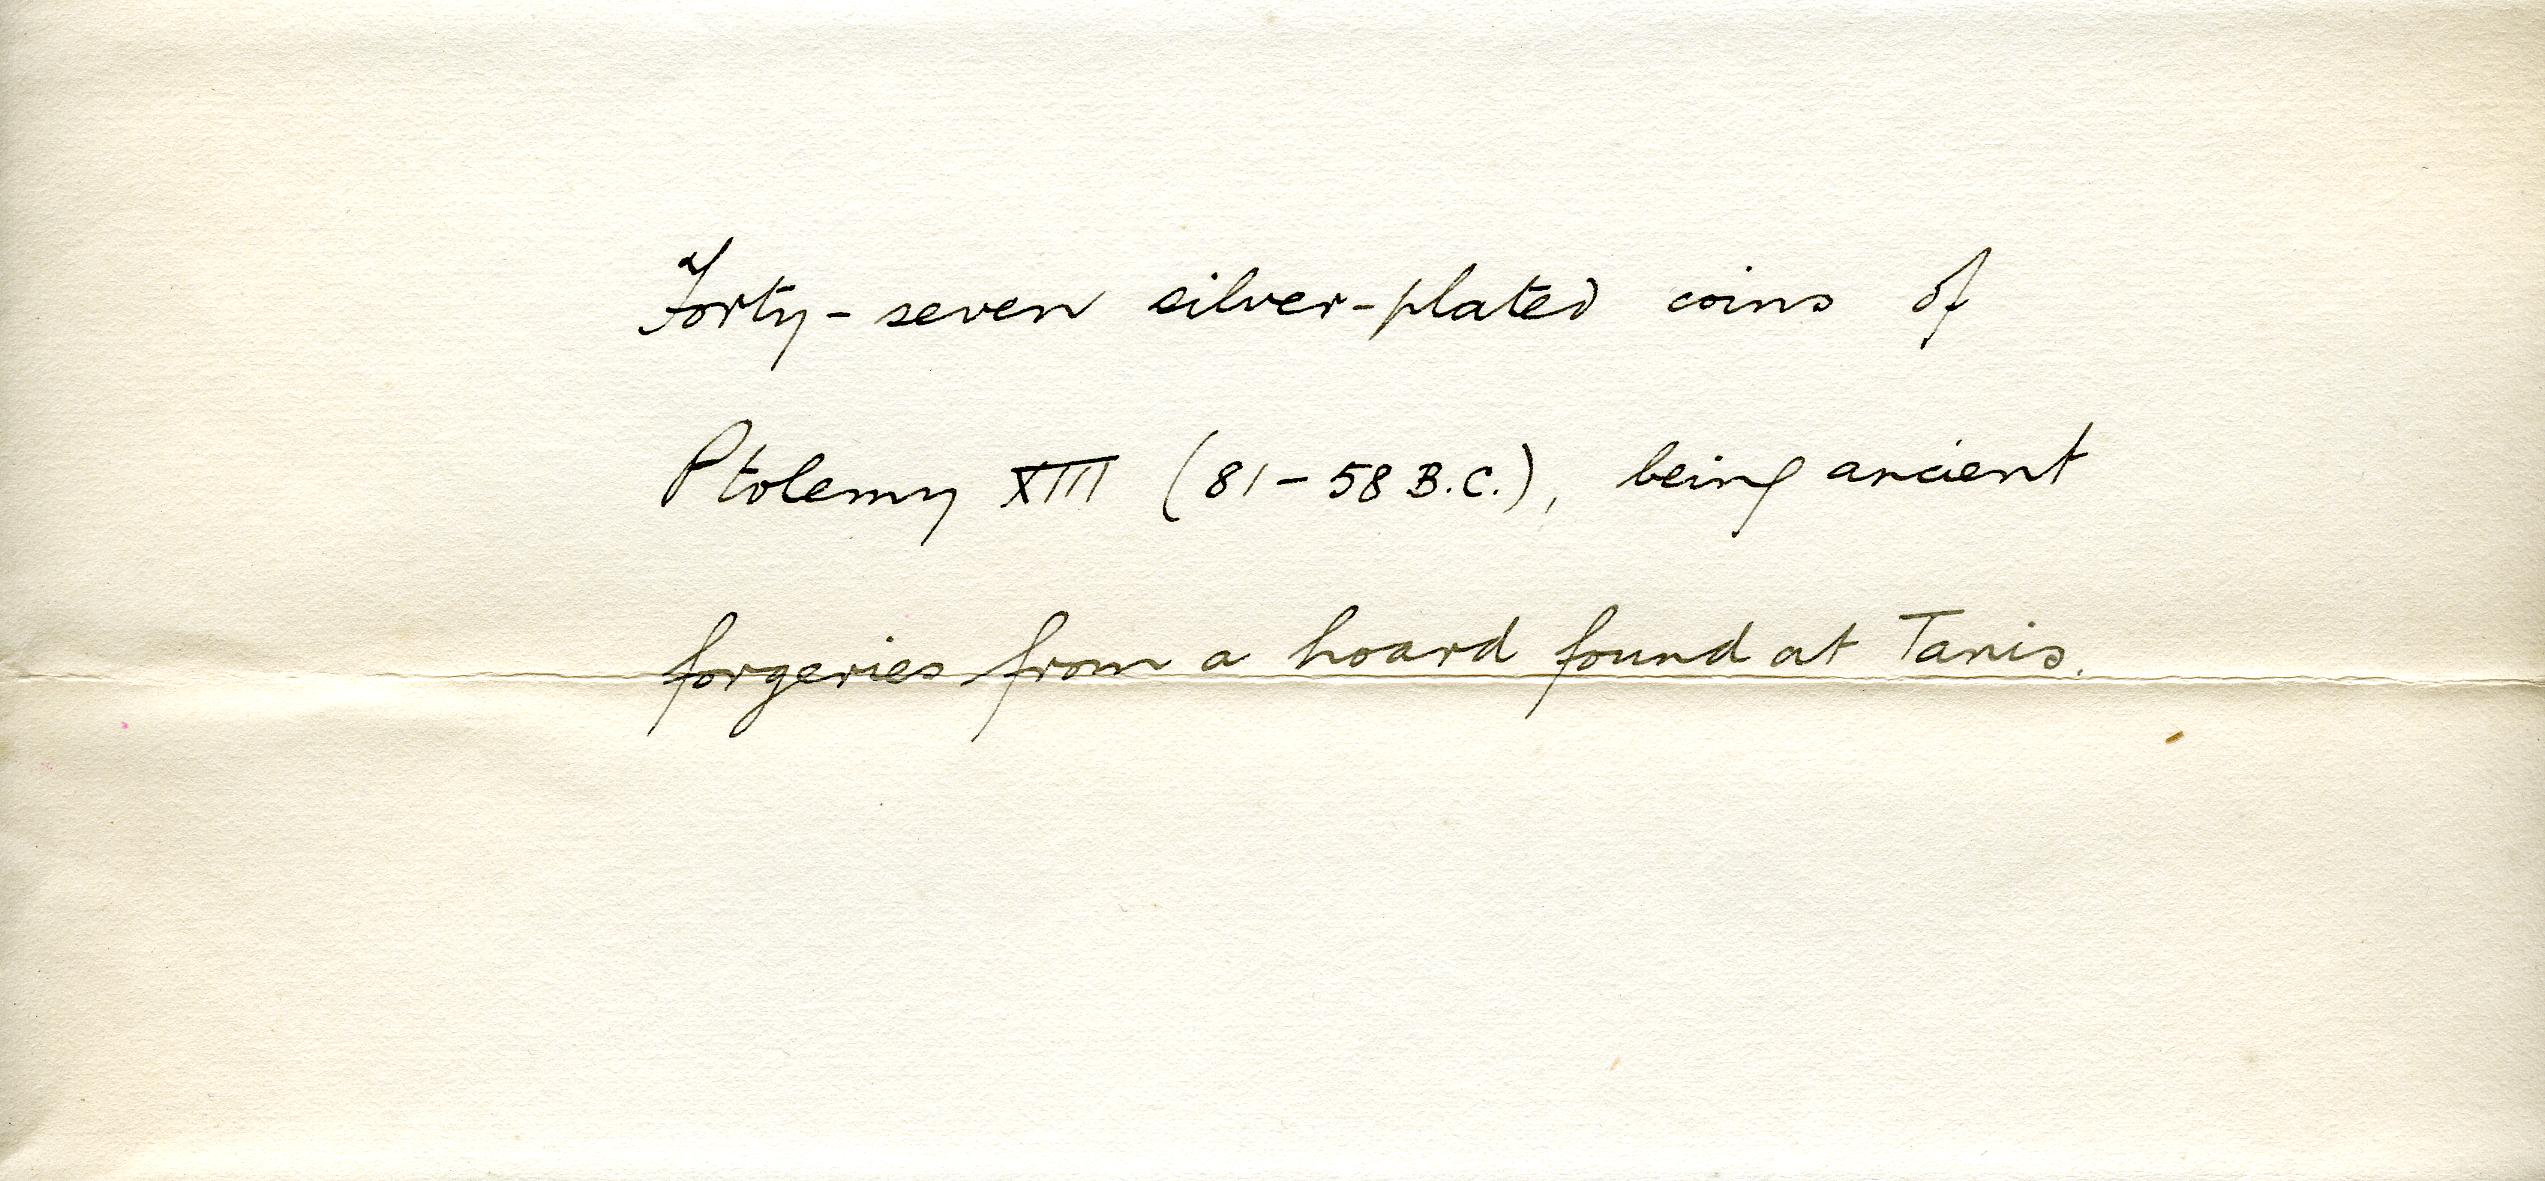 Forty-seven silver-plated coins of
Ptolemy XIII (81-58 B.C.), being ancient
forgeries from a hoard found at Tanis.